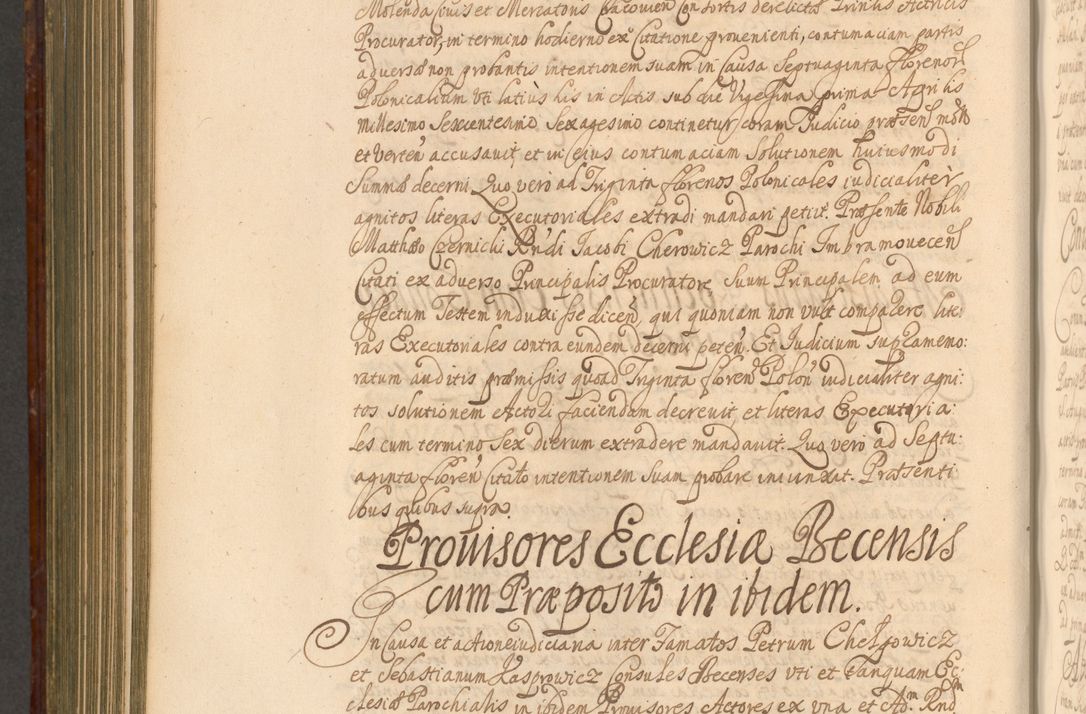 Molenda Civis et Mercatoris Cracovien Consortis derelictæ Prinlis Actricis
Procurator, in termino hodierno ex Citatione provenienti, contumaciam partis
adversæ non probantis intentionem suam in Causa Septuaginta florenorū
Polonicalium vti latiùs his in Actis sub die Vigesima prima Aprilis
Millesimo Sexcentesimo Sexagesimo continetur, coram Judicio præsen
et verten accusavit, et in eius contumaciam Solutionem huiusmodi
Summæ decerni. Quo verò ad Triginta florenos Polonicales iudicialiter
agnitos literas Executoriales extradi mandari petiit. Præsente Nobili
Matthæo Czernicki Rndi Jacobi Cherowicz Parochi Imbramovecen
Citati ex adverso Principalis Procuratore, suum Principalem ad eum
effectum Testem induxisse dicen, qui quoniam non vult comparere, lite:
ras Executoriales contra eundem decerni peten. Et Judicium supramemo:
ratum auditis præmissis quoad Triginta floren Polon iudicialiter agni:
tos solutionem Actori faciendam decrevit, et literas Executoria:
les cum termino Sex dierum extradere mandavit. Quo vero ad Septu:
aginta floren Citato intentionem suam probare iniunxit. Præsenti
bus quibus supra.
Provisores Ecclesiæ Becensis
cum Præposito in ibidem.
In Causa et actione iudiciaria inter Famatos Petrum Chełgowicz
et Sebastianum Kasprowicz Consules Becenses vti et tanquam Ec:
clesiæ Parochialis in ibidem Provisores Actores ex vna et Adm Rnd